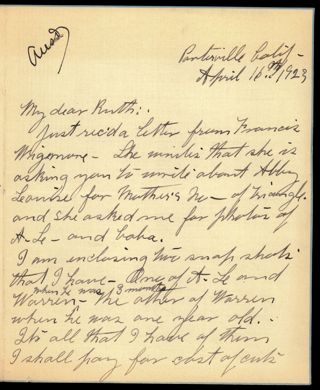 Ansd
Porterville Calif-
April 16th 1923
My dear Ruth:.
Just rec'd a letter from Francis
Wigmore - She writes that she is
asking you to write about Abby
Leouise for Mother's No - of Triangle.
and she asked me for photos of
A-Le- and baba.
I am enclosing two snap shots
that I have - One of A-Le and
when he was 3 months
Warren - the other of Warren
when he was one year old. -
Its all that I have of them
I shall pay for cost of cuts